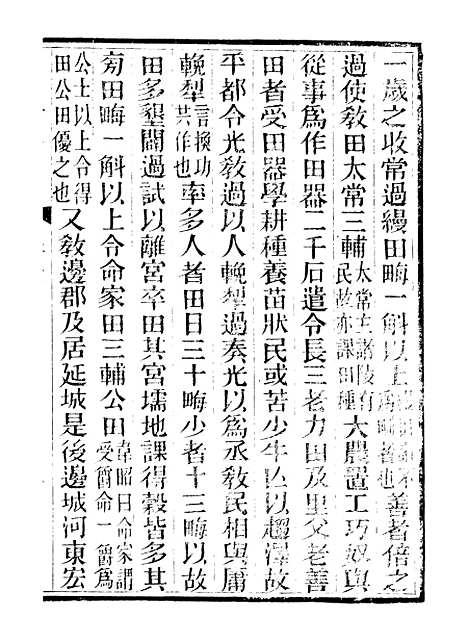 一歲之收常過縵田畮一斛以上縵田謂不爲畮者也善者倍之
過使敎田太常三輔太常主諸陵有民故亦課田種大農置工巧奴與
從事爲作田器二千石遣令長三老力田及里父老善
田者受田器學耕種養苗狀民或苦少牛亡以趨澤故
平都令光敎過以人輓犁過奏光以爲丞敎民相與庸
輓犁言換功共作也率多人者田日三十畮少者十三畮以故
田多墾闢過試以離宮卒田其宮壖地課得穀皆多其
旁田畮一斛以上令命家田三輔公田韋昭曰命家謂受爵命一爵爲
公士以上令得田公田優之也又敎邊郡及居延城是後邊城河東宏